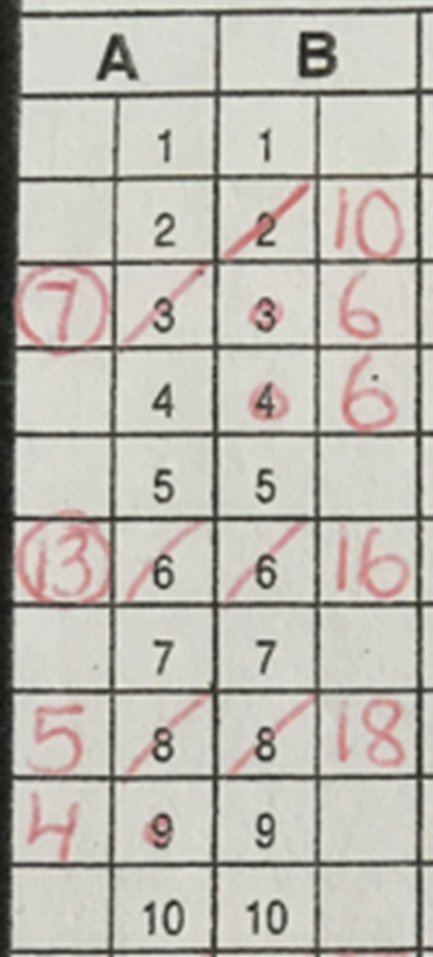 A B
1 1
2 2 10
7 3 3 6
4 4 6
5 5
13 6 6 16
7 7
5 8 8 18
4 9 9
10 10